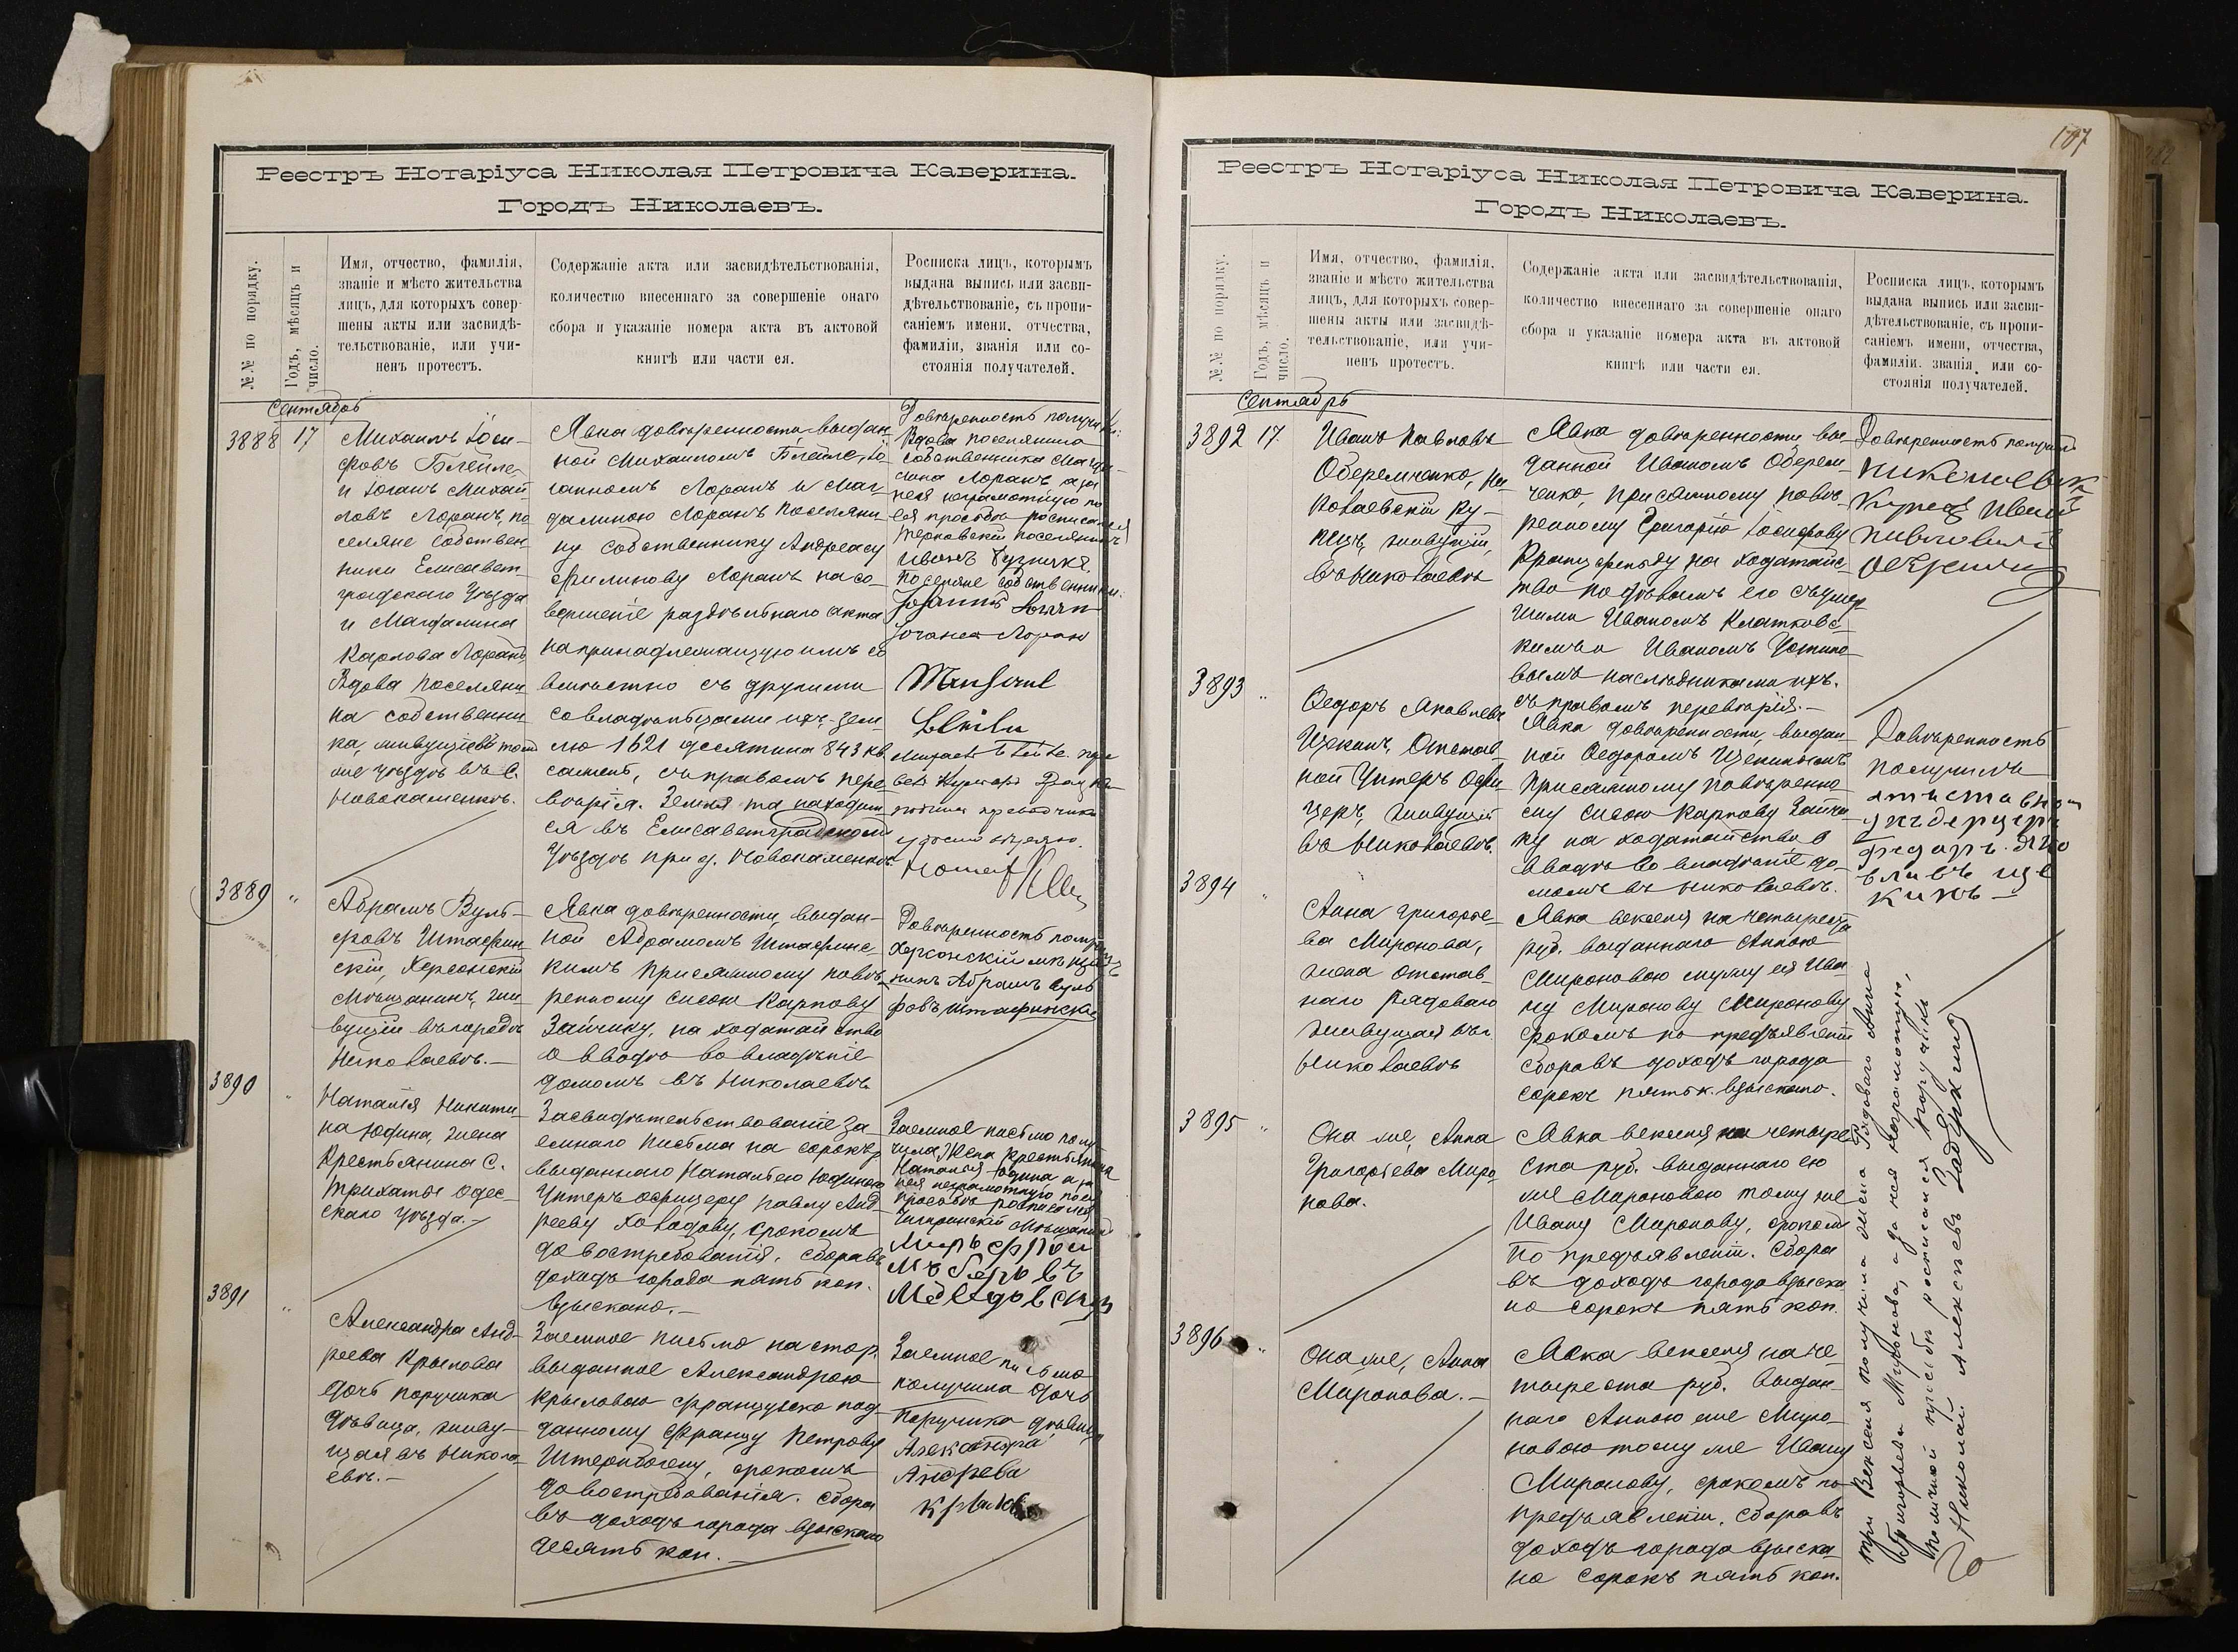 Реестръ Нотаріуса Николая Петровича Каверина.
Городъ Николаевъ.
№№ по порядку.
Годъ, мѣсяцъ и
число.
Имя, отчество, фамилія,
званіе и мѣсто жительства
лицъ, для которыхъ совер-
шены акты или засвидѣ-
тельствованіе, или учи-
ненъ протестъ.
Содержаніе акта или засвидѣтельствованія,
количество внесеннаго за совершеніе онаго
сбора и указаніе номера акта въ актовой
книгѣ или части ея.
Росписка лицъ, которымъ
выдана выпись или засви-
дѣтельствованіе, съ пропи-
саніемъ имени, отчества,
фамиліи, званія или со-
стоянія получателей.
Сентябрь
3888 17
Михаилъ Іоси-
фовъ Блейле
и Іоганъ Михай
ловъ Лоранъ, по
селяне собствен-
ники Елисавет-
градскаго Уѣзда
и Магдалина
Карлова Лоранъ,
Вдова поселяни
на собственни
ка, живущіе въ томъ
же уѣздѣ въ с.
Новокаменкѣ.
Явка довѣренности, выдан
ной Михаиломъ Блейле, Іо
ганномъ Лоранъ и Маг-
далиною Лоранъ поселяни
ну собственнику Андреасу
Филипову Лоранъ на со-
вершеніе раздѣльнаго акта
на принадлежащую имъ со
вмѣстно съ другими
совладѣльцами ихъ зем
лю 1621 десятина 843 кв.
сажень, съ правомъ пере
вѣрія. Земля та находит
ся въ Елисаветградскомъ
Уѣздѣ при д. Новокаменкѣ.
Довѣренность получили:
Вдова поселянина
собственника Магда-
лина Лоранъ а за
нея неграмотную по
ея просьбѣ росписался
Терновскій поселянинъ
Иванъ
Поселяне собственники:
Johannes Loran
Іоганес Лоран
3889 "
Абрамъ Вуль-
фовъ Штафин
скій, Херсонскій
Мѣщанинъ, жи
вущій въ городѣ
Николаевѣ.—
Явка довѣренности, выдан-
ной Абрамомъ Штафинс
кимъ присяжному повѣ-
ренному Сисою Карпову
Зайчику, на ходатайство
о вводѣ во владѣніе
домомъ въ Николаевѣ
Довѣренность получилъ
Херсонскій мѣща
нинъ Абрамъ Вуль
фовъ Штафинскій
3890 "
Наталія Никити
на Юдина, жена
Крестьянина с.
Трихатъ Одес-
скаго Уѣзда.—
Засвидѣтельствованіе за
емнаго письма на сорокъ р
выданнаго Наталіею Юдиною
Унтеръ офицеру Павлу Анд-
рееву Ховадову, срокомъ
до востребованія. Сбора въ
доходъ города пять коп.
взыскано.—
Заемное письмо полу
чила Жена Крестьянина
Наталія Юдина а за
нея неграмотную по ея
просьбѣ росписался
Чигиринскій Мѣщанинъ
3891 "
Александра Анд-
реева Крылова
дочь поручика
дѣвица, живу-
щая въ Никола-
евѣ.—
Заемное письмо на сто р.
выданное Александрою
Крыловою французско под-
данному Францу Петрову
срокомъ
до востребованія. Сбора
въ доходъ города взыскано
десять коп.—
Заемное письмо
получила дочь
Поручика дѣвица
Александра
Андрева
Крилова
107
Реестръ Нотаріуса Николая Петровича Каверина.
Городъ Николаевъ.
№№ по порядку.
Годъ, мѣсяцъ и
число.
Имя, отчество, фамилія,
званіе и мѣсто жительства
лицъ, для которыхъ совер-
шены акты или засвидѣ-
тельствованіе, или учи-
ненъ протестъ.
Содержаніе акта или засвидѣтельствованія,
количество внесеннаго за совершеніе онаго
сбора и указаніе номера акта въ актовой
книгѣ или части ея.
Росписка лицъ, которымъ
выдана выпись или засви-
дѣтельствованіе, съ пропи-
саніемъ имени, отчества,
фамиліи. званія, или со-
стоянія получателей.
Сентябрь
3892 17.
Иванъ Павловъ
Оберемченко, Ни
колаевскій ку-
пецъ, живущій,
въ Николаевѣ
Явка довѣренности вы-
данной Иваномъ Оберем
ченко, присяжному повѣ-
ренному Григорію Іосифову
на ходатайс-
тво по дѣламъ его съ умер
шими Иваномъ Клатковс-
кимъ и Иваномъ Устино-
вымъ наслѣдниками ихъ.
съ правомъ перевѣрія.—
Довѣренность получилъ
3893 "
Федоръ Яковлевъ
Щекинъ, Отстав
ной Унтеръ Офи
церъ, живущій
въ Николаевѣ.
Явка довѣренности, выдан
ной Федоромъ Щекинымъ
Присяжному Повѣренно
му Сисою Карпову Зайчи
ку на ходатайство о
вводѣ во владѣніе до-
момъ въ Николаевѣ.
Довѣренность
получилъ
3894 "
Анна Григорье-
ва Миронова,
жена отстав-
наго рядоваго
живущая въ г.
Николаевѣ
Явка векселя на четыреста
руб. выданнаго Анною
Мироновою мужу ея Ива
ну Миронову Миронову
срокомъ по предъявленіи
сбора въ доходъ города
сорокъ пять к. взыскано.
3895 "
Она же, Анна
Григорьева Миро
нова.
Явка векселя на четыре
ста руб. выданнаго ею
же Мироновою тому же
Ивану Миронову, срокомъ
по предъявленіи. Сбора
въ доходъ города взыска
но сорокъ пять коп.
3896 "
Она же, Анна
Миронова.—
Явка векселя на че-
тыреста руб. выдан-
наго Анною же Миро-
новою тому же Ивану
Миронову, срокомъ по
предъявленіи. Сбора въ
доходъ города взыска
но сорокъ пять коп.
три Векселя получила жена Рядоваго Анна
Григорьева Миронова, а за нея неграмотную,
по личной просьбѣ росписался поручикъ
Николай Алексѣевъ